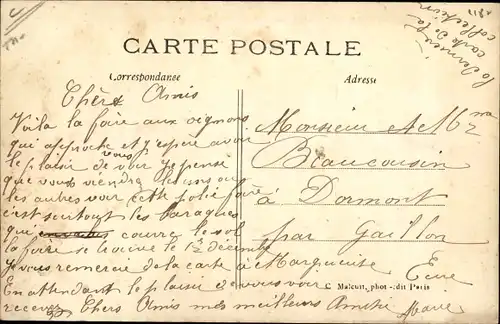 la dernière
carte de la
collection
CARTE POSTALE
Correspondance
Adresse
Chers Amis
Voila la foire aux oignons
qui approche et j'espère avoir
le plaisir de vous voir Je pense
que vous viendrez
les autres voir cette jolie foire
c'est surtout les baraques
qui couvre le sol
la foire se trouve le 1er décembre
Je vous remercie de la carte à Marguerite
En attendant le plaisir de vous voir
recevez Chers Amis mes meilleurs Amitié Marie
Monsieur et Mme
Beaucousin
à Dormont
par Gaillon
Eure
C Malcuit, phot-édit Paris